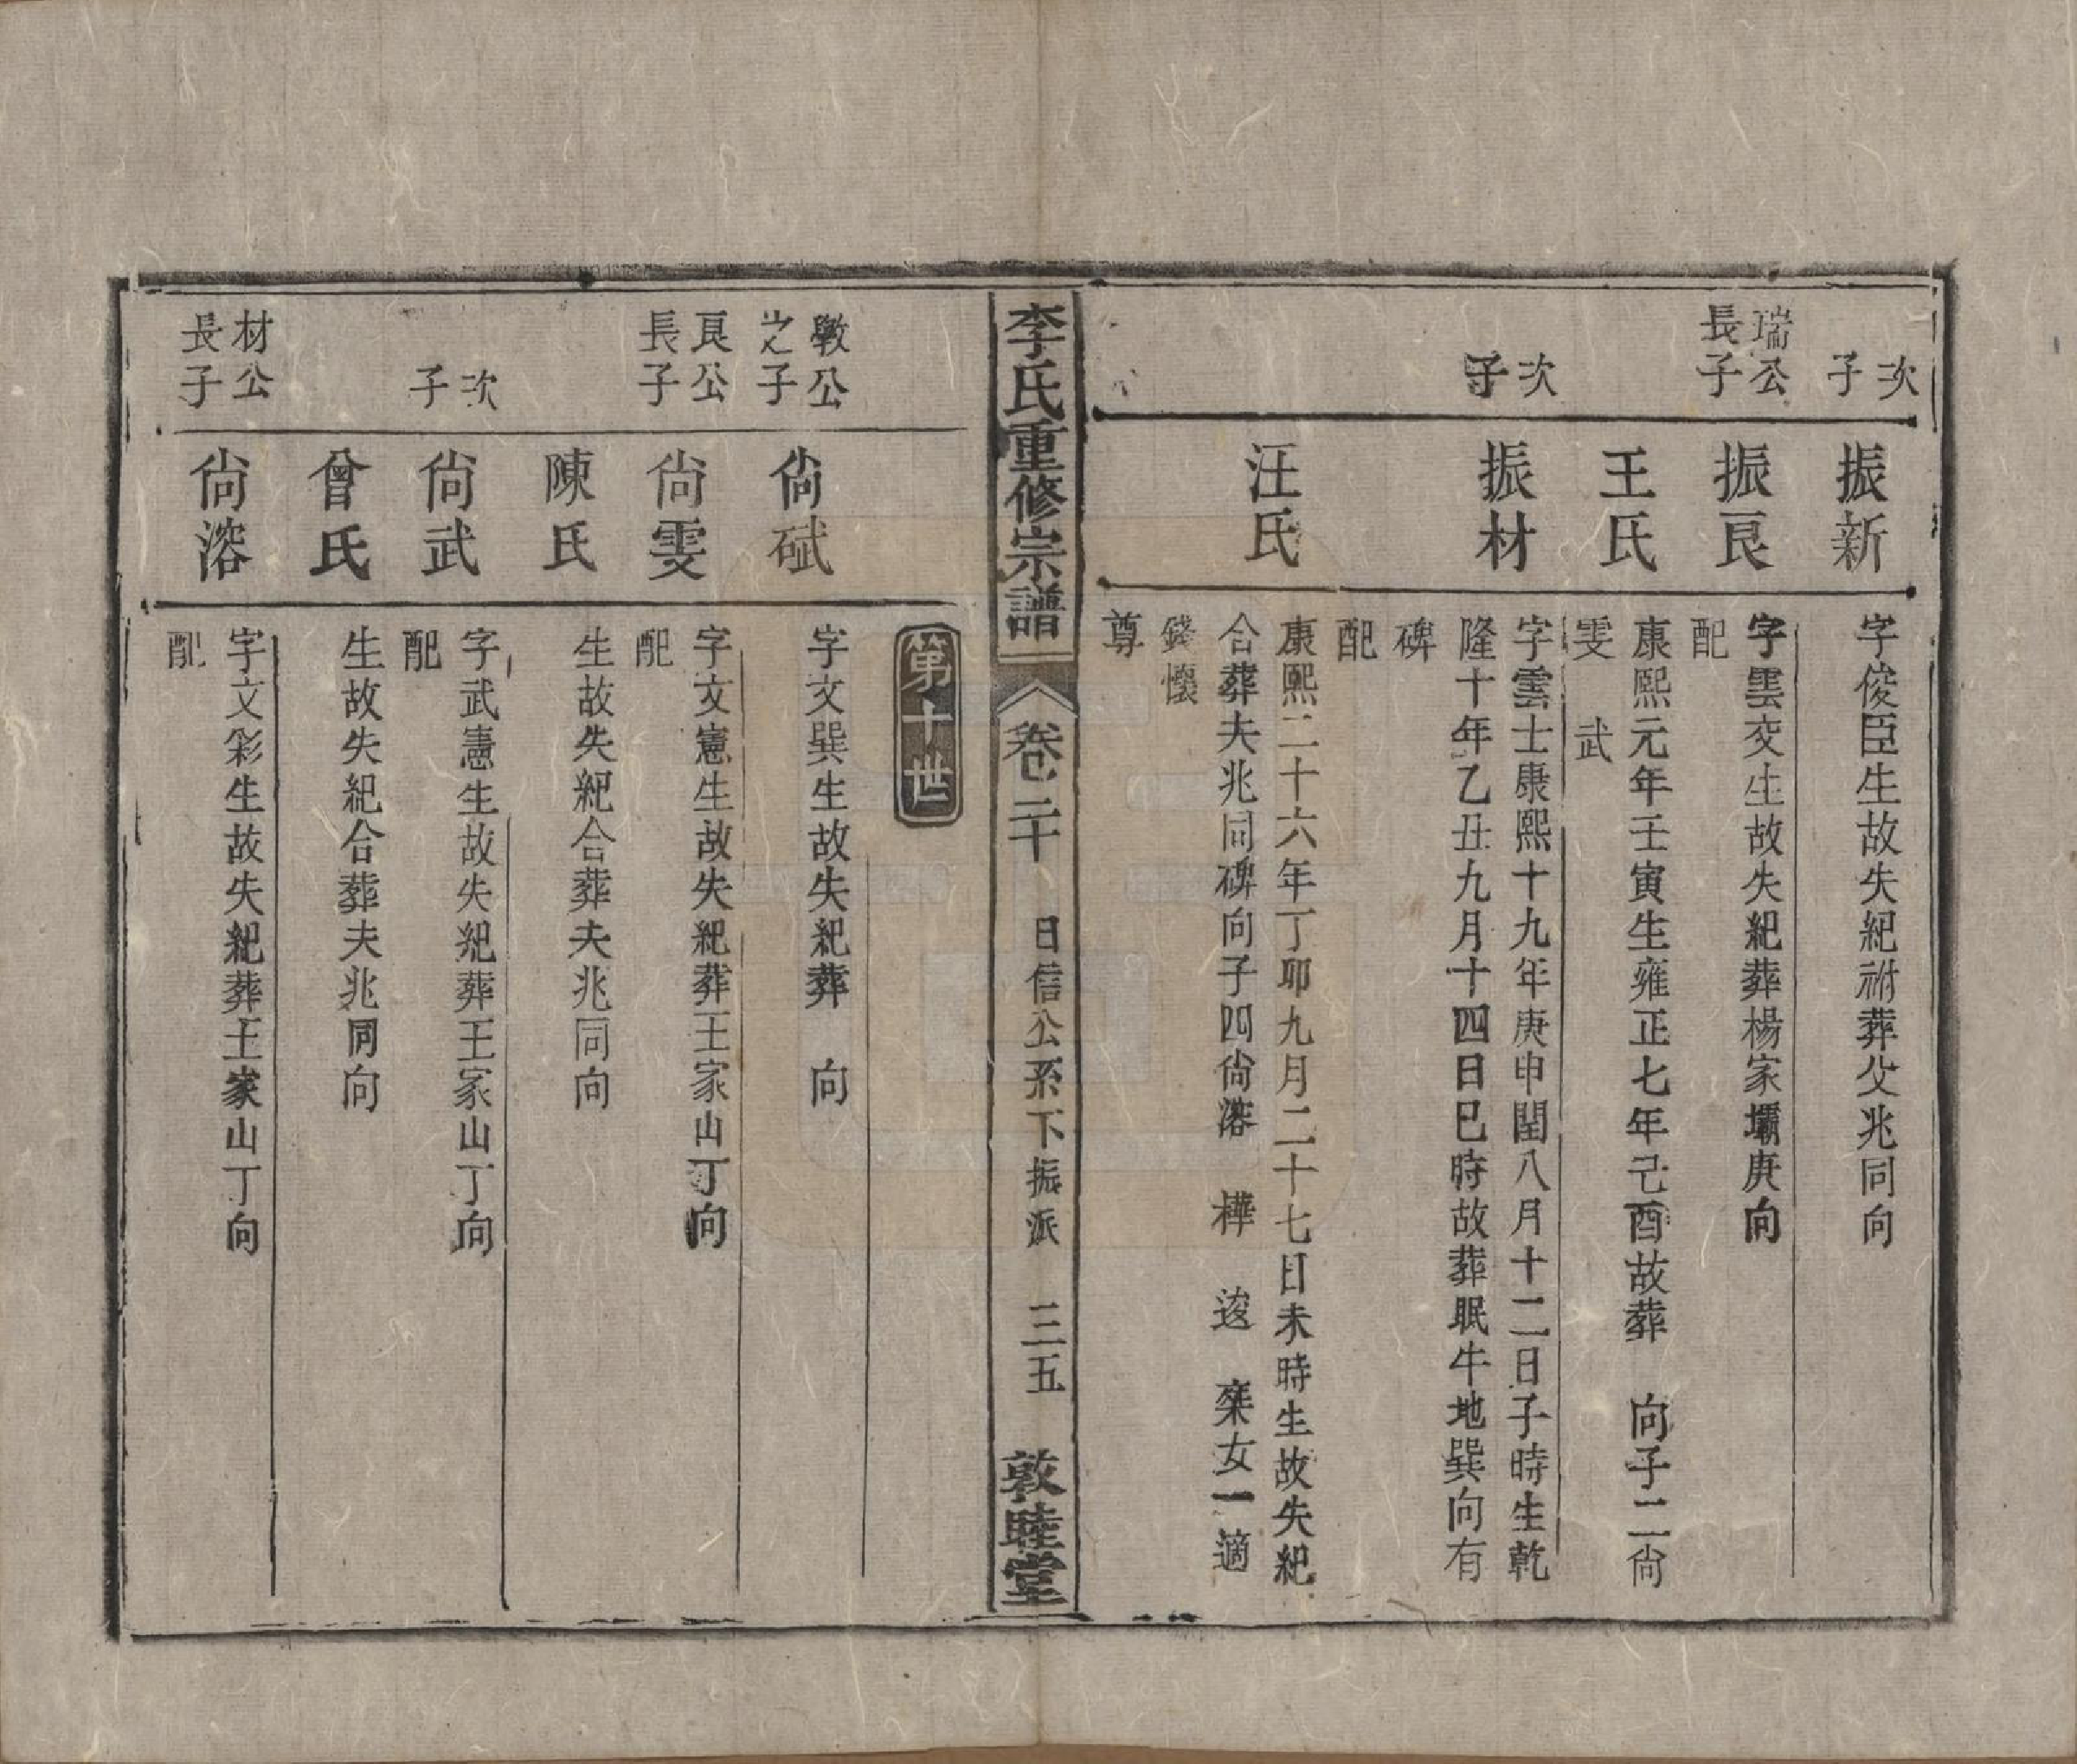 次子
振新
字俊臣生故失紀祔葬父兆同向
瑞公長子
振良
字雲交生故失紀葬楊家壩庚向
配
王氏
康熙元年壬寅生雍正七年己酉故葬　向子二尙
雯　武
次子
振材
字雲士康熙十九年庚申閏八月十二日子時生乾
隆十年乙丑九月十四日巳時故葬眠牛地巽向有
碑
配
汪氏
康熙二十六年丁卯九月二十七日未時生故失紀
合葬夫兆同碑向子四尙溶　樺　逡　棻女一適
錢懷
尊
李氏重修宗譜
卷二十　日信公系下振派　三五　敦睦堂
第十世
斅公之子
尙斌
字文巽生故失紀葬　向
良公長子
尙雯
字文憲生故失紀葬王家山丁向
配
陳氏
生故失紀合葬夫兆同向
次子
尙武
字武憲生故失紀葬王家山丁向
配
曾氏
生故失紀合葬夫兆同向
材公長子
尙溶
字文彩生故失紀葬王家山丁向
配